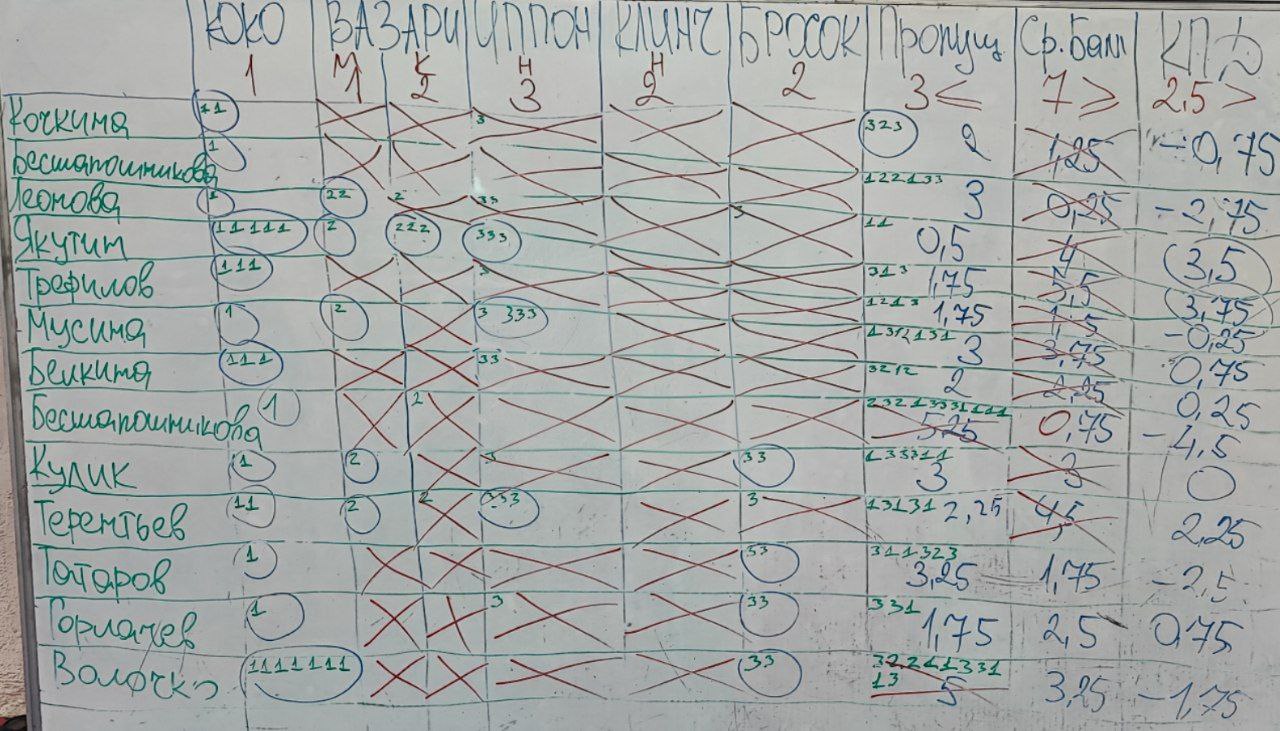 ЮКО ВАЗАРИ ИППОН КЛИНЧ БРОСОК Пропущ Ср.Балл КПД
М К Н Н
1 1 2 3 2 2 3≤ 7≥ 2,5>
Кочкина 11 3 323 2 1,25 -0,75
Бесшапошникова 1 122133 3 0,25 -2,75
Леонова 1 22 2 33 3
Якутин 11111 2 222 333 11 0,5 4 3,5
Трефилов 111 3 313 1,75 5,5 3,75
Мусина 1 2 3 333 1213 1,75 1,5 -0,25
Белкина 111 33 3 3,75 0,75
3212 2 2,25 0,25
Бесшапошникова 1 2 5,25 0,75 -4,5
Кулик 1 2 3 33 133311 3 3 0
Терентьев 11 2 2 333 3 13131 2,25 4,5 2,25
Татаров 1 33 311323 3,25 1,75 -2,5
Горлачев 1 3 33 331 1,75 2,5 0,75
Волочко 1111111 33 322411331
13 5 3,25 -1,75